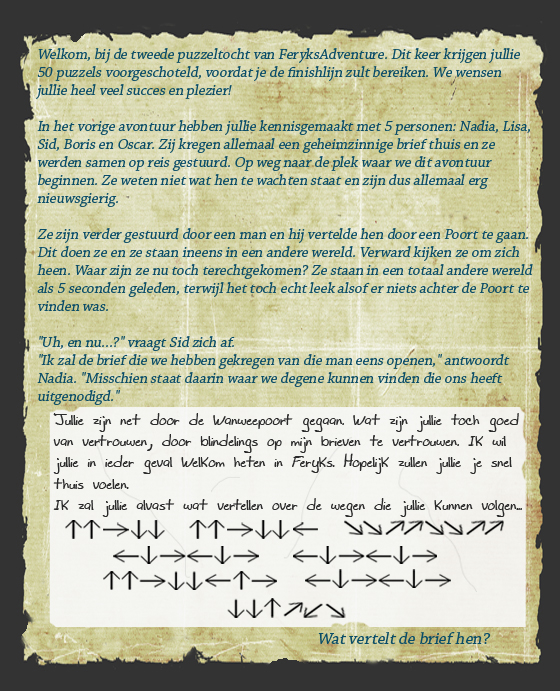 Welkom, bij de tweede puzzeltocht van FeryksAdventure. Dit keer krijgen jullie
50 puzzels voorgeschoteld, voordat je de finishlijn zult bereiken. We wensen
jullie heel veel succes en plezier!
In het vorige avontuur hebben jullie kennisgemaakt met 5 personen: Nadia, Lisa,
Sid, Boris en Oscar. Zij kregen allemaal een geheimzinnige brief thuis en ze
werden samen op reis gestuurd. Op weg naar de plek waar we dit avontuur
beginnen. Ze weten niet wat hen te wachten staat en zijn dus allemaal erg
nieuwsgierig.
Ze zijn verder gestuurd door een man en hij vertelde hen door een Poort te gaan.
Dit doen ze en ze staan ineens in een andere wereld. Verward kijken ze om zich
heen. Waar zijn ze nu toch terechtgekomen? Ze staan in een totaal andere wereld
als 5 seconden geleden, terwijl het toch echt leek alsof er niets achter de Poort te
vinden was.
"Uh, en nu...?" vraagt Sid zich af.
"Ik zal de brief die we hebben gekregen van die man eens openen," antwoordt
Nadia. "Misschien staat daarin waar we degene kunnen vinden die ons heeft
uitgenodigd."
Jullie zijn net door de Wanweepoort gegaan. Wat zijn jullie toch goed
van vertrouwen, door blindelings op mijn brieven te vertrouwen. IK wil
jullie in ieder geval WelKom heten in FeryKs. HopelijK zullen jullie je snel
thuis voelen.
IK zal jullie alvast wat vertellen over de wegen die jullie Kunnen volgen...
↑↑→↓↓ ↑↑→↓↓← ↘↘↗↗↘↘↗↗
←↓→←↓→ ←↓→←↓→
↑↑→↓↓←↑→ ←↓→←↓→
↓↓↑↗↙↘
Wat vertelt de brief hen?